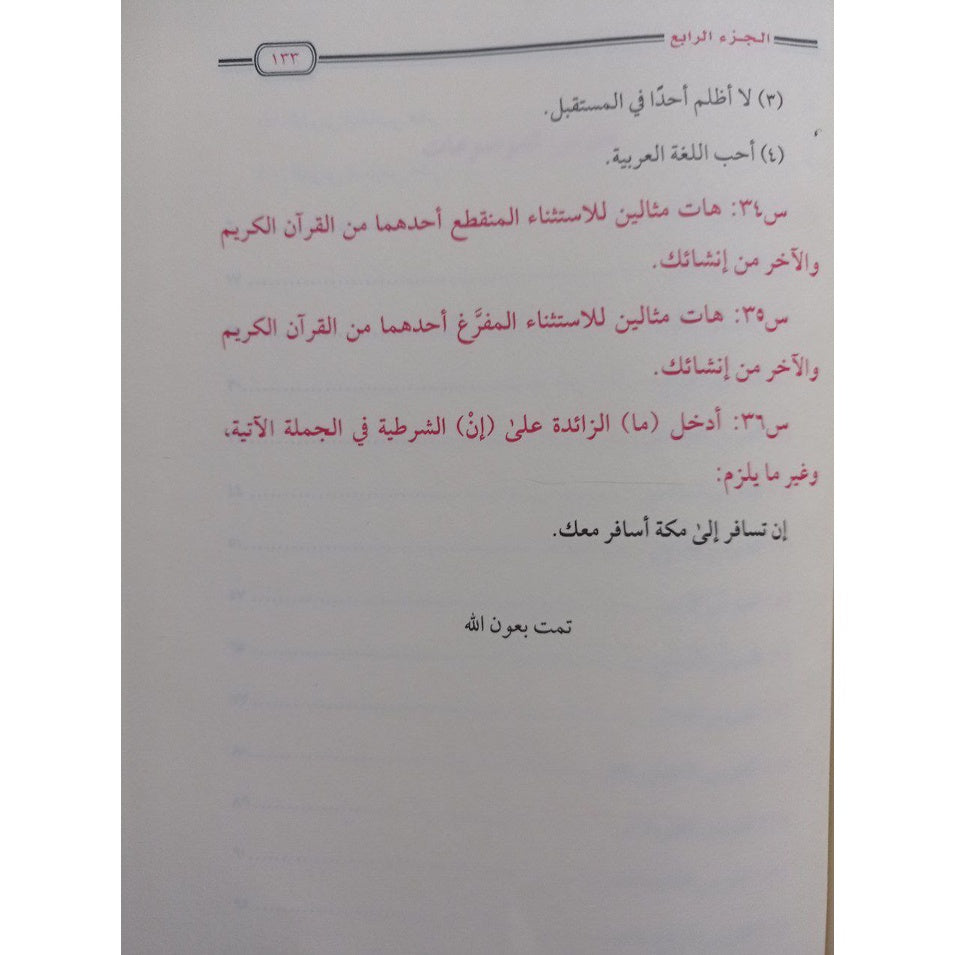 الجزء الرابع
١٣٣
(٣) لا أظلم أحدًا في المستقبل.
(٤) أحب اللغة العربية.
س٣٤: هات مثالين للاستثناء المنقطع أحدهما من القرآن الكريم
والآخر من إنشائك.
س٣٥: هات مثالين للاستثناء المفرَّغ أحدهما من القرآن الكريم
والآخر من إنشائك.
س٣٦: أدخل (ما) الزائدة علىٰ (إنْ) الشرطية في الجملة الآتية،
وغير ما يلزم:
إن تسافر إلىٰ مكة أسافر معك.
تمت بعون الله